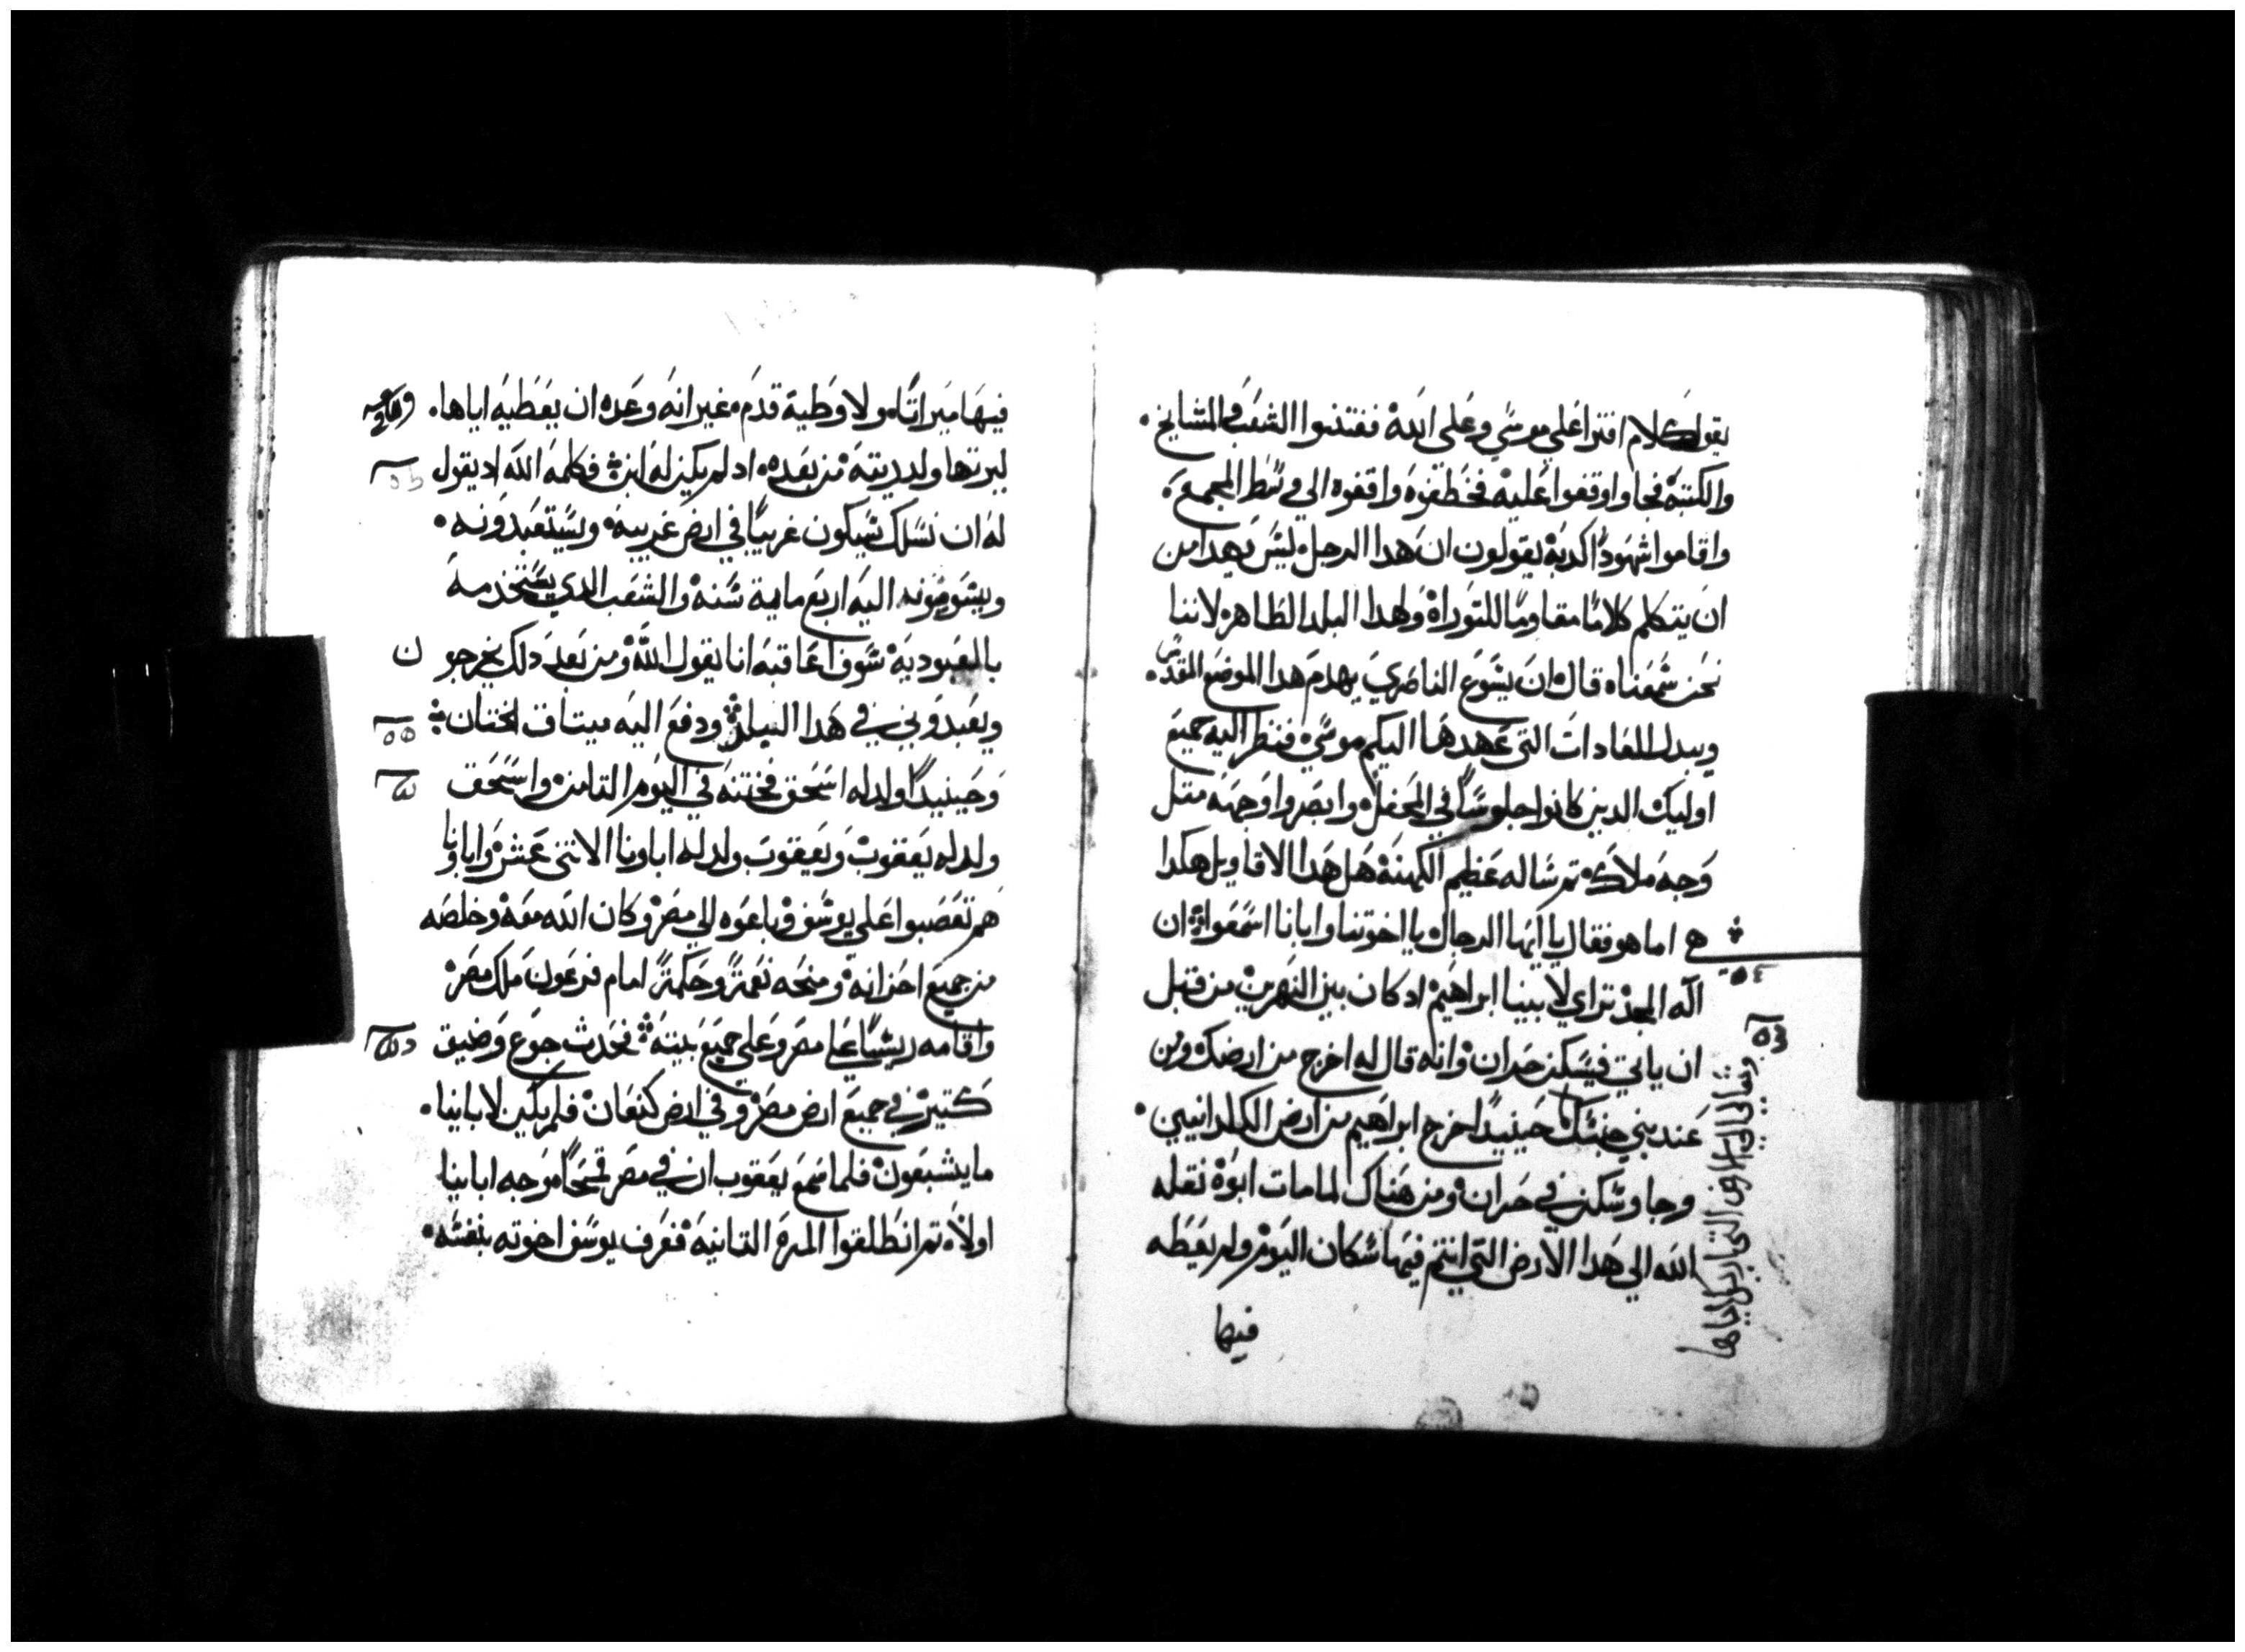 يقول كلام افترا علي موسي وعلي الله ففتنوا الشعب والمشايخ.
والكتبة فجاوا وقفوا عليه فخطفوه واقفوه الي وسط المجمع
واقاموا شهودا كدبة يقولون ان هدا الرجل ليس يهدا من
ان يتكلم كلاما مقاوما للتوراه ولهدا البلد الطاهر لاننا
نحن سمعناه قال ان يسوع الناصري يهدم هدا الموضع المقدس.
ويبدل العادات التي عهدها اليكم موسي فنظر اليه جميع
اوليك الدين كانوا جلوسا في المحفل وابصروا وجهه متل
وجه ملاك تم ساله عظيم الكهنة هل هدا الاقاويل هكدا
هي اما هو فقال يا ايها الرجال يا اخوتنا وابانا اسمعوا ان
اله المجد تراي لابينا ابراهيم اد كان بين النهرين من قبل
ان ياتي فيسكن حران وانه قال له اخرج من ارضك ومن
عند بني جنسك حينيدا خرج ابراهيم من ارض الكلدانيين.
وجا وسكن في حران ومن هناك لما مات ابوه نقله
الله الي هدا الارض التي انتم فيها سكان اليوم ولم يعطه
فيها
وتعالي الي الارض التي اريك اياها
فيها ميراتا ولا وطية قدم غير انه وعده ان يعطيه اياها.
ليرتها ولدريته من بعده اد لم يكن له ابن فكلمه الله اد يقول
له ان نسلك سيكون غريبا في ارض غريبة ويستعبدونه.
ويسومونه اليه اربع ماية سنة والشعب الدي يستخدمه
بالعبودية سوف اعاقبه انا يقول الله ومن بعد دلك يخرجون
ويعبدوني في هدا البلد ودفع اليه ميتاق الختان
وحينيدا اولد له اسحق فختنه في اليوم التامن واسحق
ولد له يعقوب ويعقوب ولد له اباونا الاتني عشر واباونا
هم تعصبوا علي يوسف وباعوه الي مصر وكان الله معه وخلصه
من جميع احزانه ومنحه نعمة وحكمة امام فرعون ملك مصر
واقامه رييسا علي مصر وعلي جميع بيته فحدث جوع وضيق
كتير في جميع ارض مصر وفي ارض كنعان فلم يكن لابانيا.
ما يشبعون فلما سمع يعقوب ان في مصر قمحا وجه ابانيا
اولا تم انطلقوا المرة التانية فعرف يوسف اخوته بنفسه.